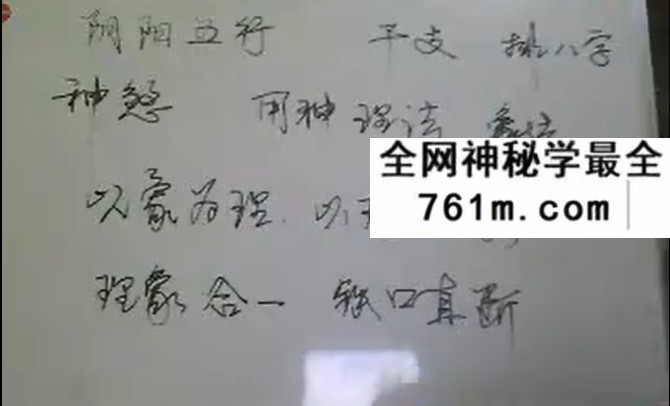 阴阳五行 干支 排八字
神煞 用神 理法 象法
全网神秘学最全
761m.com
以象为理、以
理象合一 铁口直断